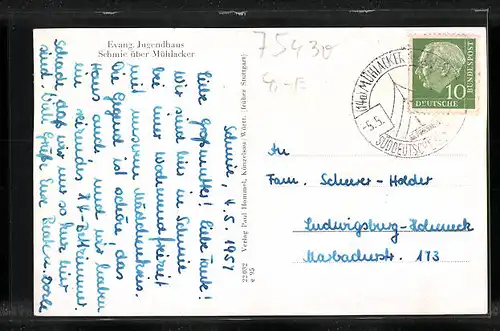 Evang. Jugendhaus
Schmie über Mühlacker
75430
4,-
Schmie, 4.5.1957
Liebe Großmutter! Liebe Tante!
Wir sind hier in Schmie
bei einer Wochenendfreizeit
mit unserem Mädchenkreis.
Die Gegend ist schön, das
Haus auch und wir haben
ein reizendes 4-Bettzimmer.
Schade daß wir nur so kurz hier
sind! Viele Grüße Eure
22 602
e 95
Verlag Paul Hommel, Künzelsau/Württ. (früher Stuttgart)
(14a) MÜHLACKER
-5.5.
SÜDDEUTSCH
10
DEUTSCHE
BUNDESPOST
An
Fam. Scheerer-Holder
Ludwigsburg-Hoheneck
Marbacherstr. 173